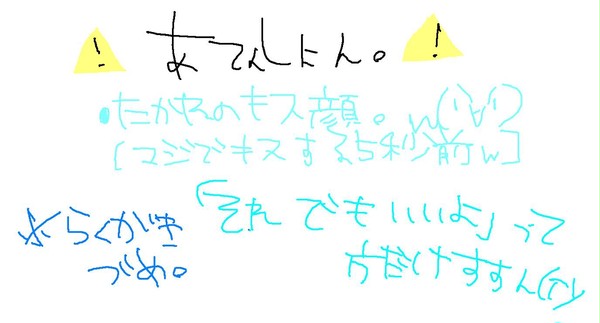 ! あてんしょん。 !
•たがれのキス顔。w
(マジでキスする5秒前w]
「それでもいいよ」って
方だけすすん
※らくがき
づめ。